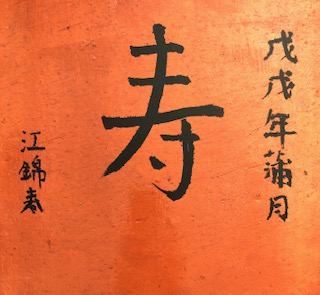 戊戌年蒲月
寿
江錦春